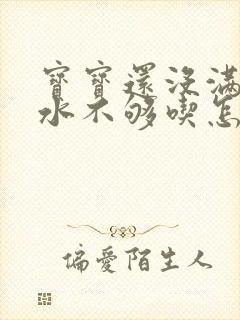 寶寶還沒滿
水不够喫怎
偏愛陌生人